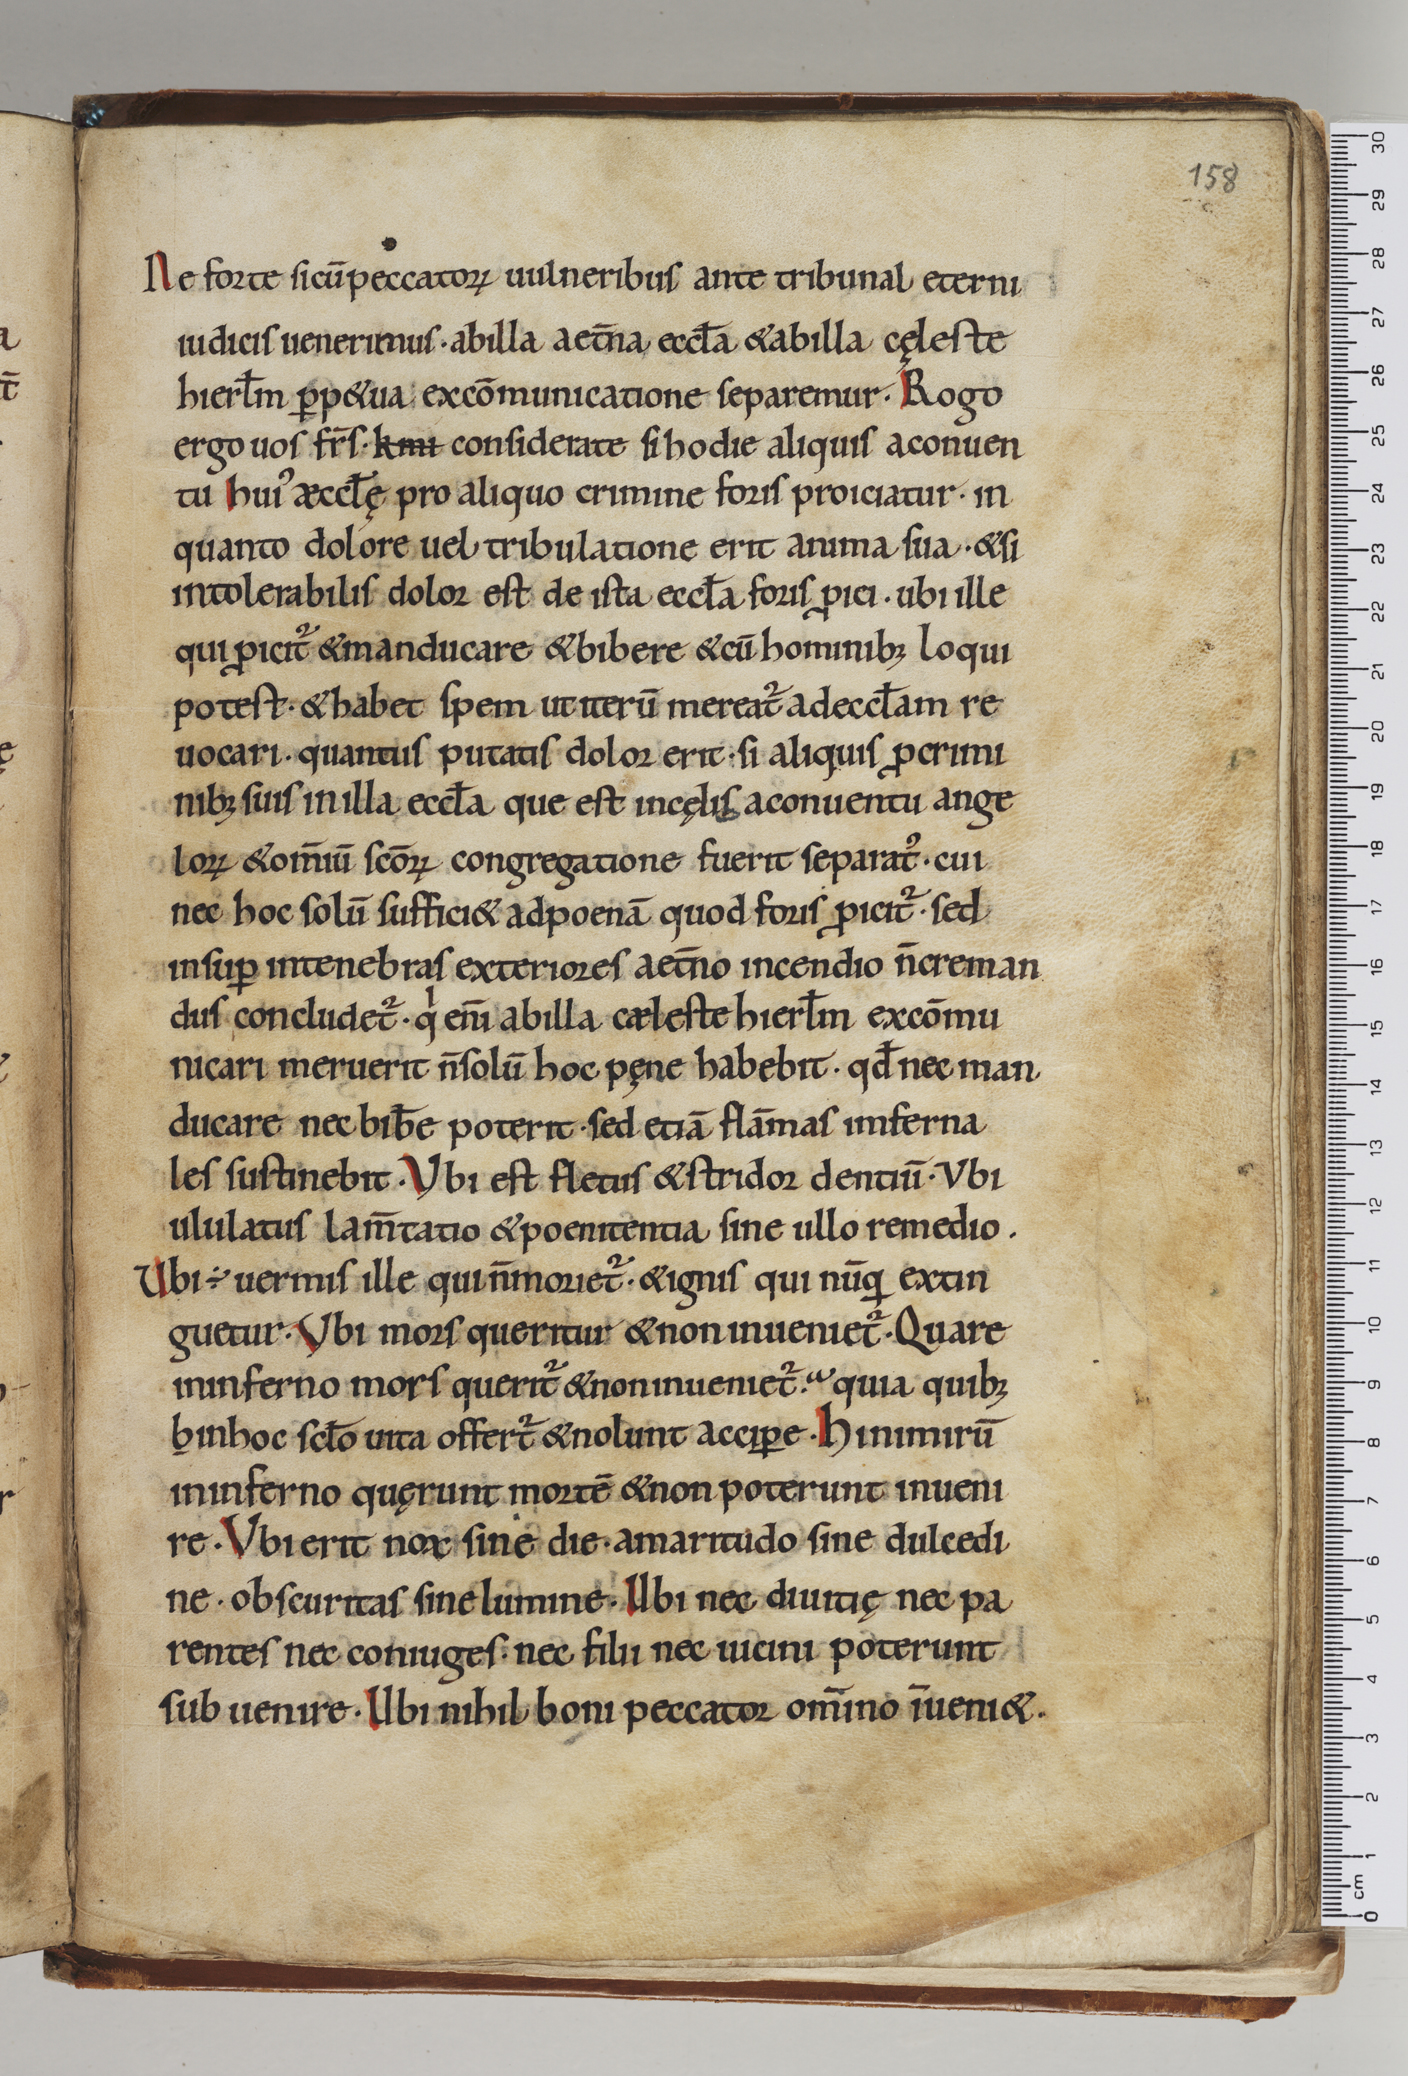 158
Ne forte si cū peccatoꝝ uulneribus ante tribunal eterni
iudicis uenerimus · ab illa aet̄na eccl̄a & ab illa cęleste
hierl̄m ꝑp&ua excōmunicatione separemur · Rogo
ergo uos fr̄s · kmi considerate si hodie aliquis a conuen
tu huiꝰ æccl̄ę pro aliquo crimine foris proiciatur · in
quanto dolore uel tribulatione erit anima sua · & si
intolerabilis dolor est de ista eccl̄a foris ꝓici · ubi ille
qui ꝓicit᷑ & manducare & bibere & cū hominibꝫ loqui
potest · & habet spem ut iterū mereat᷑ ad eccl̄am re
uocari · quantus putatis dolor erit · si aliquis ꝓ crimi
nibꝫ suis in illa eccl̄a que est in cęlis a conuentu ange
loꝝ & om̄iū scōꝝ congregatione fuerit separatꝰ · cui
nec hoc solū suffici& ad poenā quod foris ꝓicit᷑ · sed
insuꝑ in tenebras exteriores aet̄no incendio n̄ creman
dus concludet᷑ · qⁱ eni̅ ab illa cæleste hierl̄m excōmu
nicari meruerit n̄ solū hoc pęne habebit · qd̄ nec man
ducare nec bib̄e poterit · sed etiā flāmas inferna
les sustinebit · Vbi est fletus & stridor dentiū · Vbi
ululatus lam̄tatio & poenitentia sine ullo remedio ·
Vbi ÷ uermis ille qui n̄ moriet᷑ · & ignis qui nūꝗ extin
guetur · Vbi mors queritur & non inueniet᷑ · Quare
in inferno mors querit᷑ & non inueniet᷑ · quia quibꝫ
hin hoc scl̄o uita offert᷑ & nolunt acciꝑe · Hi nimirū
in inferno quęrunt mortē & non poterunt inueni
re · Vbi erit nox sine die · amaritudo sine dulcedi
ne · obscuritas sine lumine · Ubi nec diuitię nec pa
rentes nec coniuges · nec filii nec uicini poterunt
sub uenire · Ubi nihil boni peccator om̄ino īueni& ·
0 cm 1 2 3 4 5 6 7 8 9 10 11 12 13 14 15 16 17 18 19 20 21 22 23 24 25 26 27 28 29 30